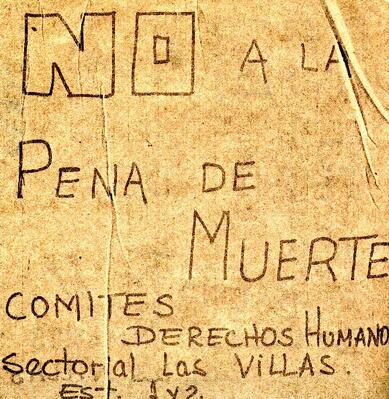 NO A LA
PENA DE
MUERTE
COMITES
DERECHOS HUMANO
Sectorial Las ViLLAS.
EST. 1 y 2.